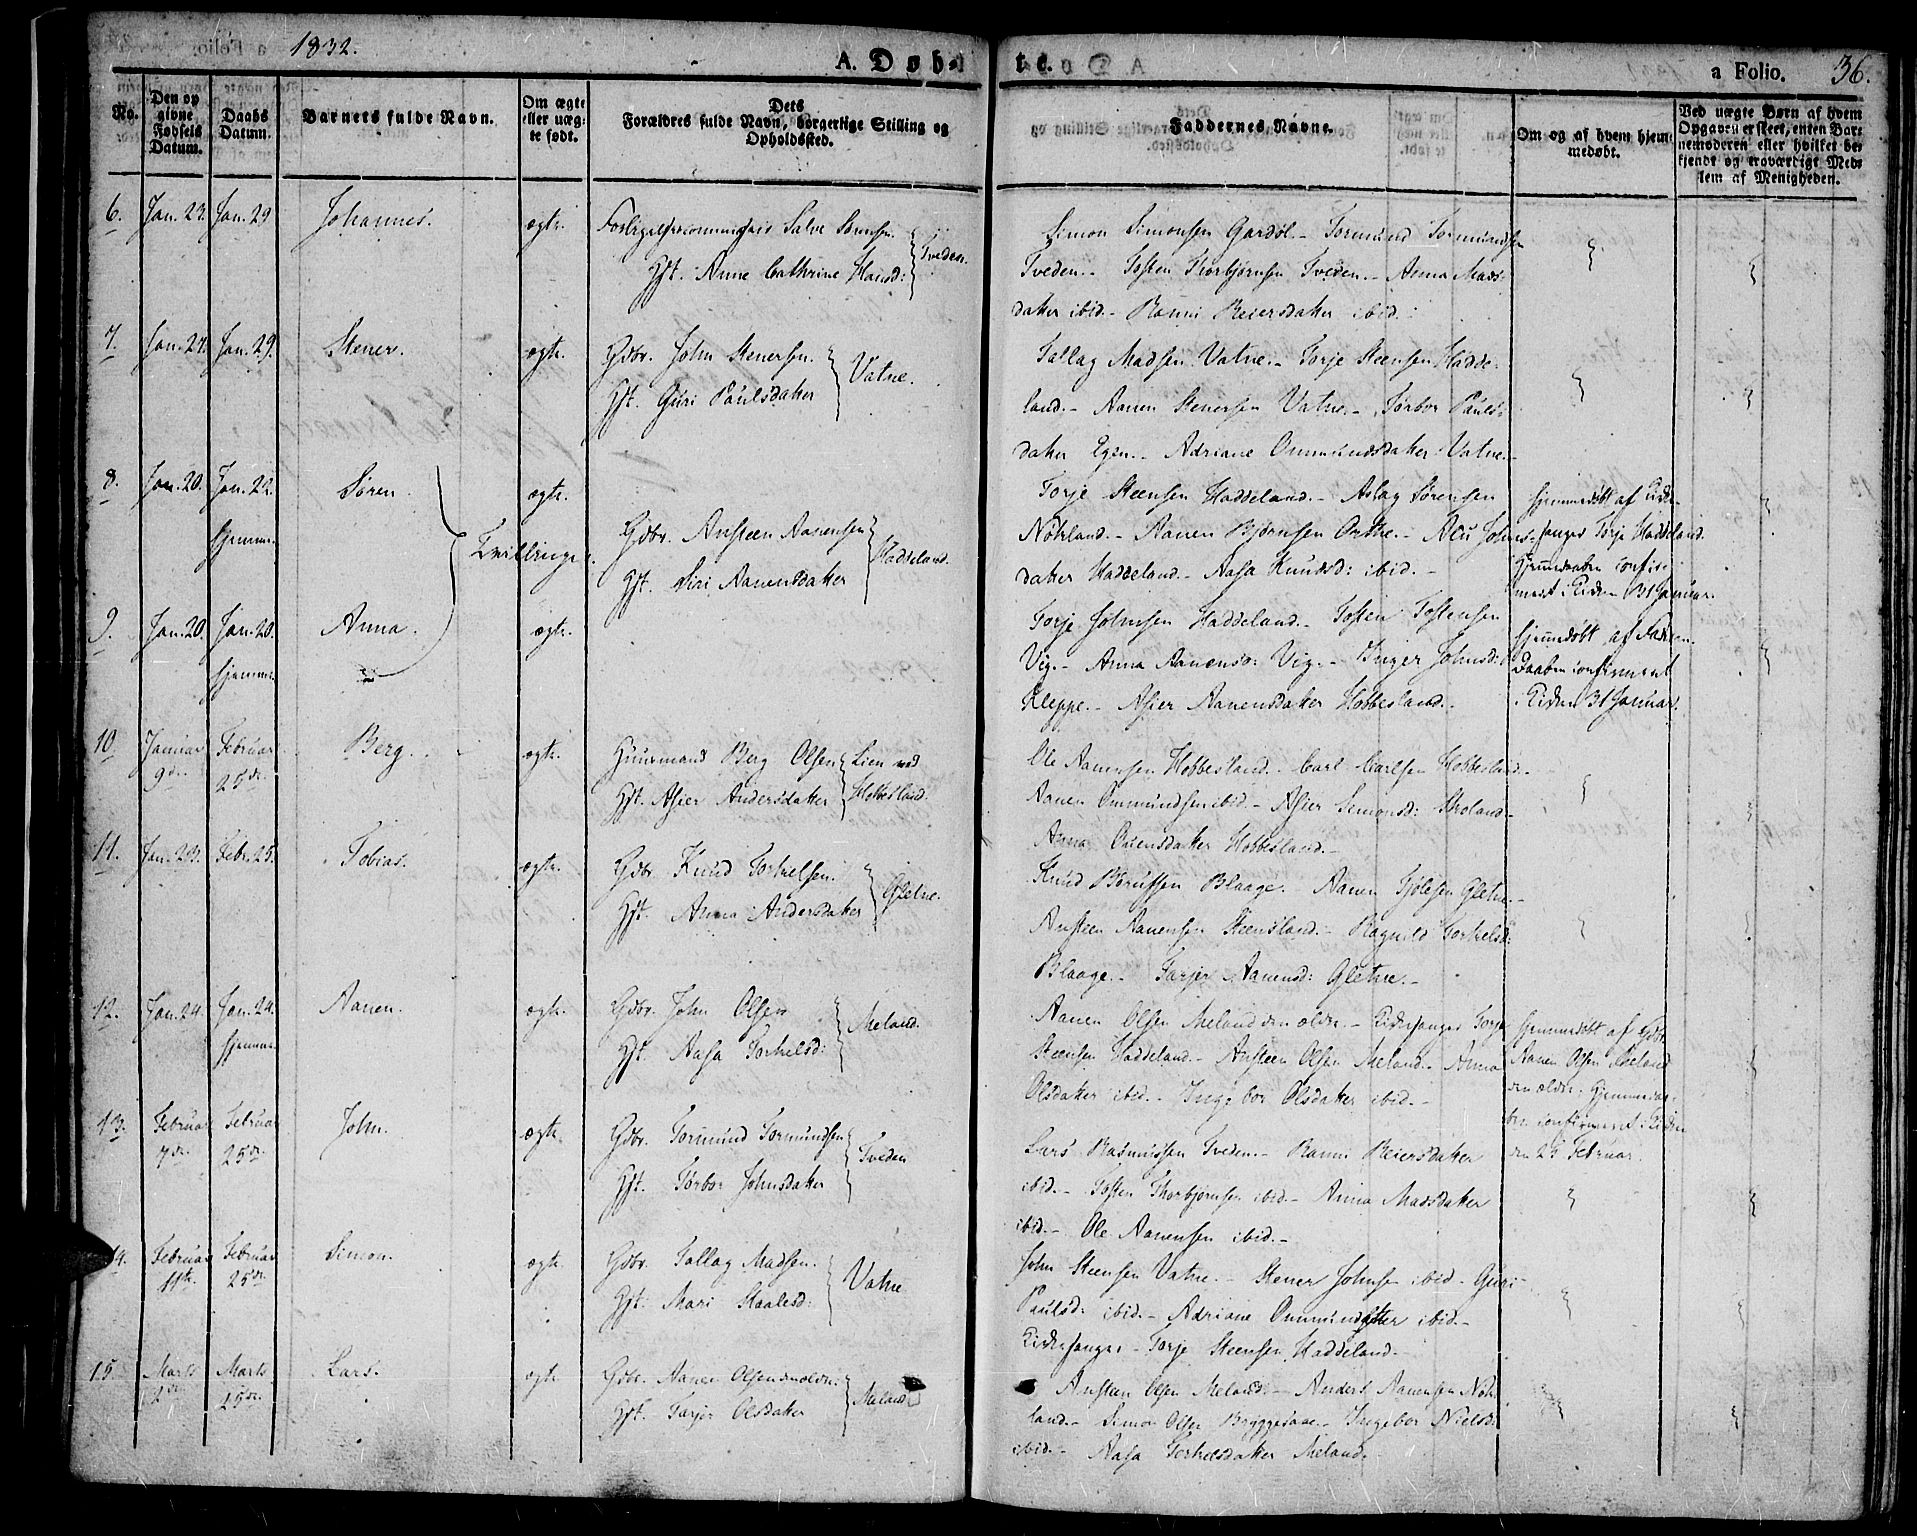 1832.
A. Døb-
te.
a Folio. 36.
No.
Den op
givne
Fødsels
Datum.
Daabs
Datum.
Barnets fulde Navn.
Om ægte
eller uæg-
te født.
Dets
Forældres fulde Navn, borgerlige Stilling og
Opholdssted.
Faddernes Navne.
Om og af hvem hjem-
medøbt.
Ved uægte Børn af hvem
Opgaven er skeet, enten Bar-
nemoderen eller hvilket be-
kjendt og troværdigt Med-
lem af Menigheden.
6. Jan. 23. Jan. 29 Johannes. ægte. Salve Sørensen.
Hst. Anne Cathrine Hansd: Tveden.
Simon Simonsen Gardøl. - Tormund Tormundsen
Tveden. - Tosten Thorbjørnsen Tveden. - Anna Mads-
datter ibid. - Ranni Reiersdatter ibid.
7. Jan. 24. Jan. 29. Stener. ægte. Gdbr. John Stenersen.
Hst. Guri Paulsdatter Vatne.
Tallag Madsen Vatne. - Torje Steensen Hadde-
land. - Aanen Stenersen Vatne. - Torbor Pauls-
datter Egen. - Adriane Ommundsdatter Vatne. -
8. Jan. 20. Jan. 22. Søren. ægte.
hjemme. Tvillinger. Gdbr. Ansteen Aanensen
Hst. Siri Aanensdatter Haddeland.
Torje Steensen Haddeland. - Aslag Sørensen
Nøtland. - Aanen Bjørnsen - Johns-
datter Haddeland. - Aasa Knudsd: ibid. -
hjemmedøbt af Kirke-
sanger Torje Haddeland.
Hjemmedaaben confir-
meret i Kirken 31 Januar.
9. Jan. 20. Jan. 20. Anna. ægte.
hjemme.
Torje Johnsen Haddeland. - Tosten Tostensen
Vig. - Anna Aanensd: Vig. - Inger Johnsd:
Kleppe. - Asier Aanensdatter Hobbesland. -
hjemmedøbt af Faderen.
Daaben confirmeret
i Kirken 31 Januar.
10. Januar Februar Berg. ægte. Huusmand Berg Olsen Lien ved
9de. 25de. Hst. Asier Andersdatter Hobbesland.
Ole Aanensen Hobbesland. - Carl Carlsen Hobbesland. -
Aanen Ommundsen ibid. - Asier Simonsd: Stroland. -
Anna Hobbesland. -
11. Jan. 23. Febr. 25. Tobias. ægte. Gdbr. Knud Torkelsen.
Hst. Anna Andersdatter Gletne.
Knud Blaage. - Aanen Gletne. -
Ansteen Aanensen Steensland. - Ragnild Torkelsd:
Blaage. - Tarjer Aanensd: Gletne. -
12. Jan. 24. Jan. 24. Aanen. ægte. Gdbr. John Olsen
hjemme. Hst. Aasa Torkelsd: Meland.
Aanen Olsen Meland den ældre. - Kirkesanger Torje
Steensen Haddeland. - Ansteen Olsen Meland. - Anna
Olsdatter ibid. - Ingebor Olsdatter ibid. -
hjemmedøbt af Gdbr.
Aanen Olsen Meland
den ældre. Hjemmedaa-
ben confirmeret i Kirken
den 25 Februar.
13. Februar Februar John. ægte. Gdbr. Tormund Tormundsen
7de. 25de. Hst. Torbor Johnsdatter Tveden
Lars Rasmussen Tveden. - Ranni Reiersdatter
ibid. - Tosten Thorbjørnsen ibid. - Anna Madsdatter
ibid. - Ole Aanensen ibid. -
14. Februar Februar Simon. ægte. Gdbr. Tallag Madsen.
11te. 25de. Hst. Mari Staalesd: Vatne
John Steensen Vatne. - Stener Johnsen ibid. - Guri
Paulsd: ibid. - Adriane Ommundsdatter ibid. -
Kirkesanger - Torje Steensen Haddeland. -
15. Marts Marts Lars. ægte Gdbr. Aanen Olsen den ældre.
2den 25de. Hst. Tarjer Olsdatter Meland
Ansteen Olsen Meland. - Anders Aanensen Nøt-
land. - Simon Olsen Bryggesaae. - Ingebor Nielsd:
ibid. - Aasa Torkelsdatter Meland.